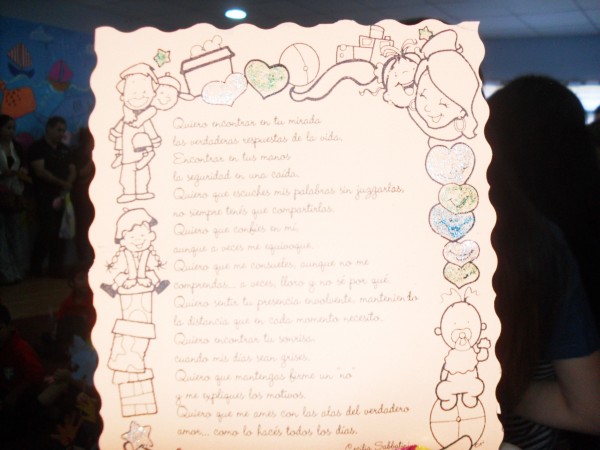 Quiero encontrar en tu mirada
las verdaderas respuestas de la vida.
Encontrar en tus manos
la seguridad en una caída.
Quiero que escuches mis palabras sin juzgarlas,
no siempre tenés que compartirlas.
Quiero que confíes en mí,
aunque a veces me equivoque.
Quiero que me consueles, aunque no me
comprendas... a veces, lloro y no sé por qué.
Quiero sentir tu presencia envolvente, manteniendo
la distancia que en cada momento necesito.
Quiero encontrar tu sonrisa
cuando mis días sean grises.
Quiero que mantengas firme un "no"
y me expliques los motivos.
Quiero que me ames con las alas del verdadero
amor... como lo hacés todos los días.
Cecilia